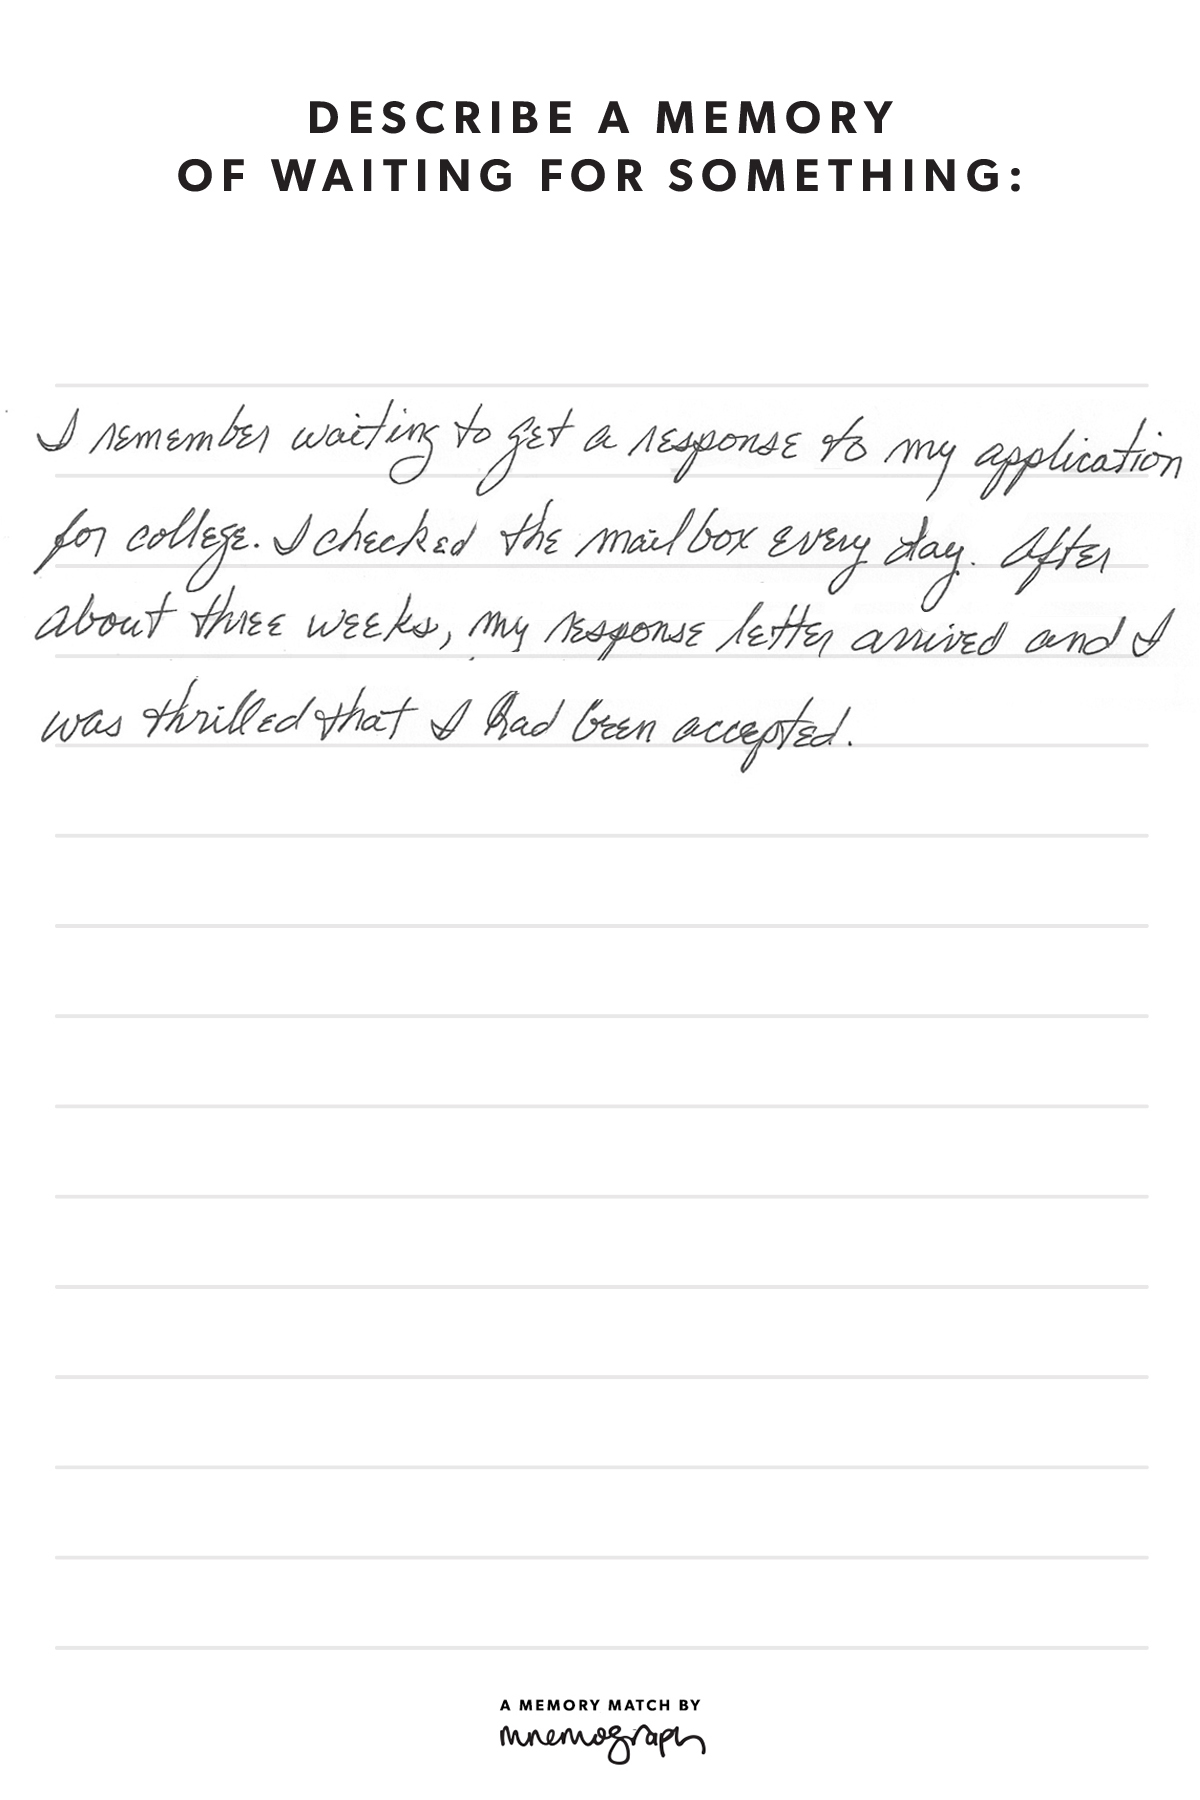 DESCRIBE A MEMORY
OF WAITING FOR SOMETHING:
I remember waiting to get a response to my application
for college. I checked the mailbox every day. After
about three weeks, my response letter arrived and I
was thrilled that I had been accepted.
A MEMORY MATCH BY
mnemograph